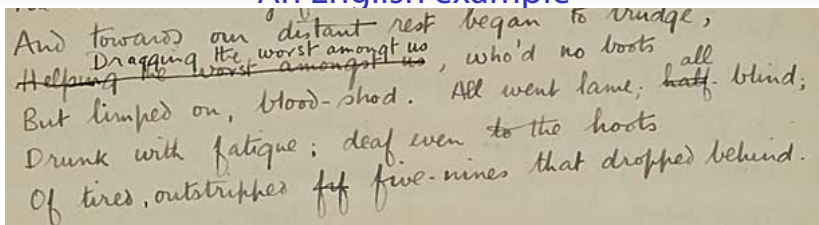 An English example
And towards our distant rest began to trudge,
Dragging the worst amongt us
Helping the worst amongst us, who'd no boots
all
But limped on, blood-shod. All went lame; half- blind;
Drunk with fatigue; deaf even to the hoots
Of tired, outstripped fif five-nines that dropped behind.